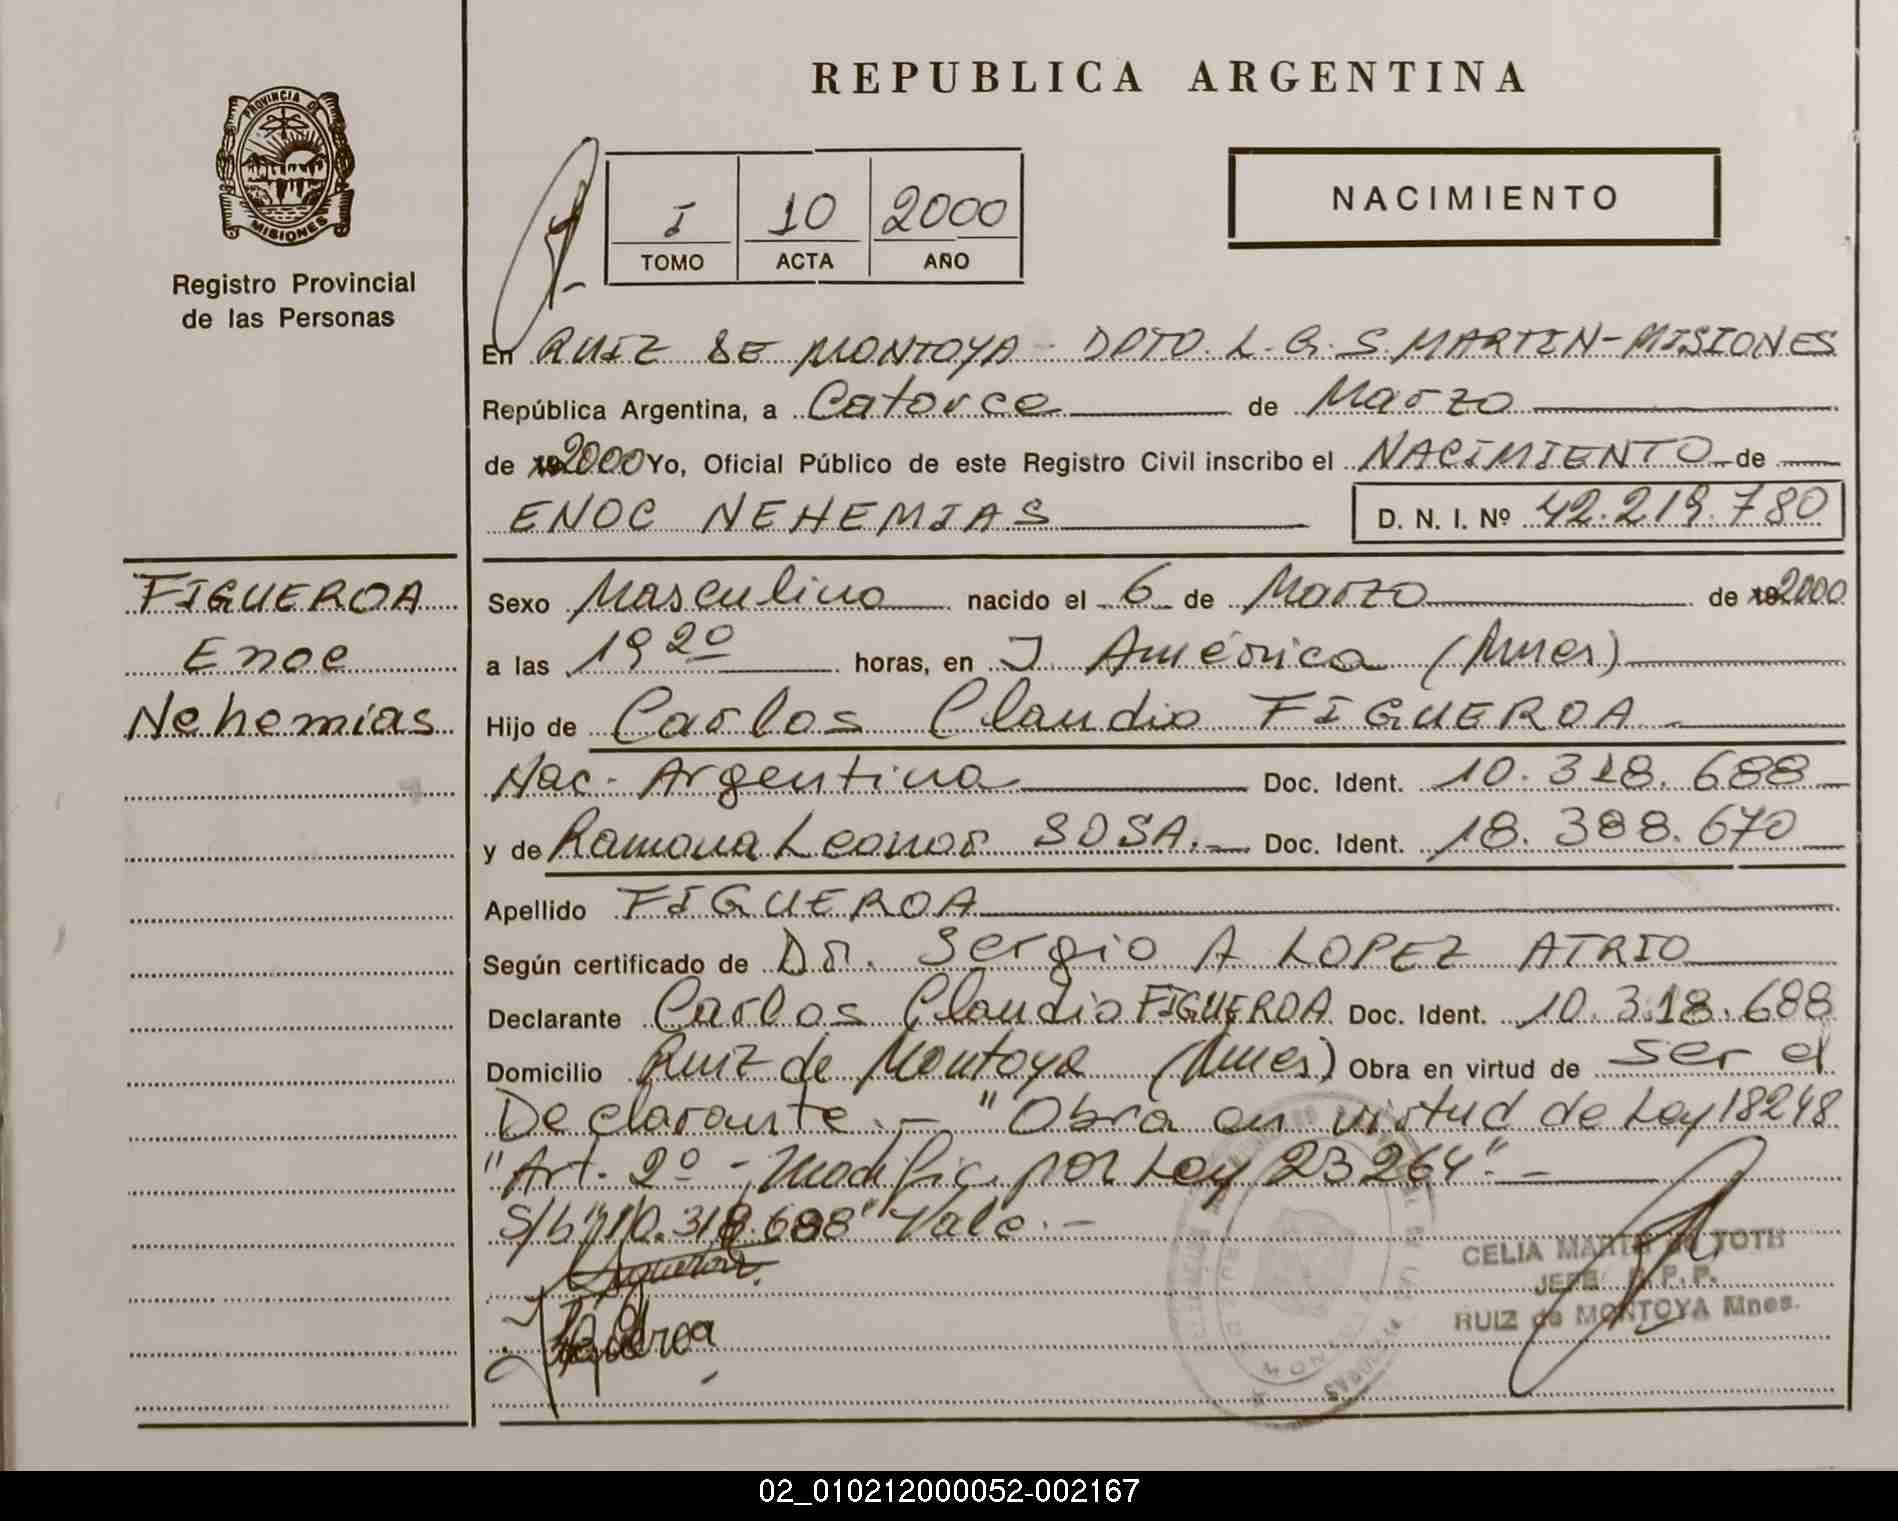 REPUBLICA ARGENTINA
PROVINCIA DE
MISIONES
Registro Provincial
de las Personas
I 10 2000
TOMO ACTA AÑO
NACIMIENTO
En RUIZ DE MONTOYA - DPTO. L. G. S. MARTIN - MISIONES
República Argentina, a Catorce de Marzo
de 2000 Yo, Oficial Público de este Registro Civil inscribo el NACIMIENTO de
ENOC NEHEMIAS D. N. I. Nº 42.219.780
FIGUEROA
Enoc
Nehemias
Sexo Masculino nacido el 6 de Marzo de 2000
a las 19 20 horas, en J. América (Mnes)
Hijo de Carlos Claudio FIGUEROA
Nac. Argentina Doc. Ident. 10.318.688
y de Ramona Leonor SOSA. Doc. Ident. 18.388.670
Apellido FIGUEROA
Según certificado de Dr. Sergio A LOPEZ ATRIO
Declarante Carlos Claudio FIGUEROA Doc. Ident. 10.318.688
Domicilio Ruiz de Montoya (Mnes) Obra en virtud de ser el
Declarante.- "Obra en virtud de Ley 18248
"Art. 2º - Modific. por Ley 23264".-
S/b "10.318.688" Vale.-
Figueroa
CELIA MARTA de TOTH
JEFE R.P.P.
RUIZ de MONTOYA Mnes.
02_010212000052-002167